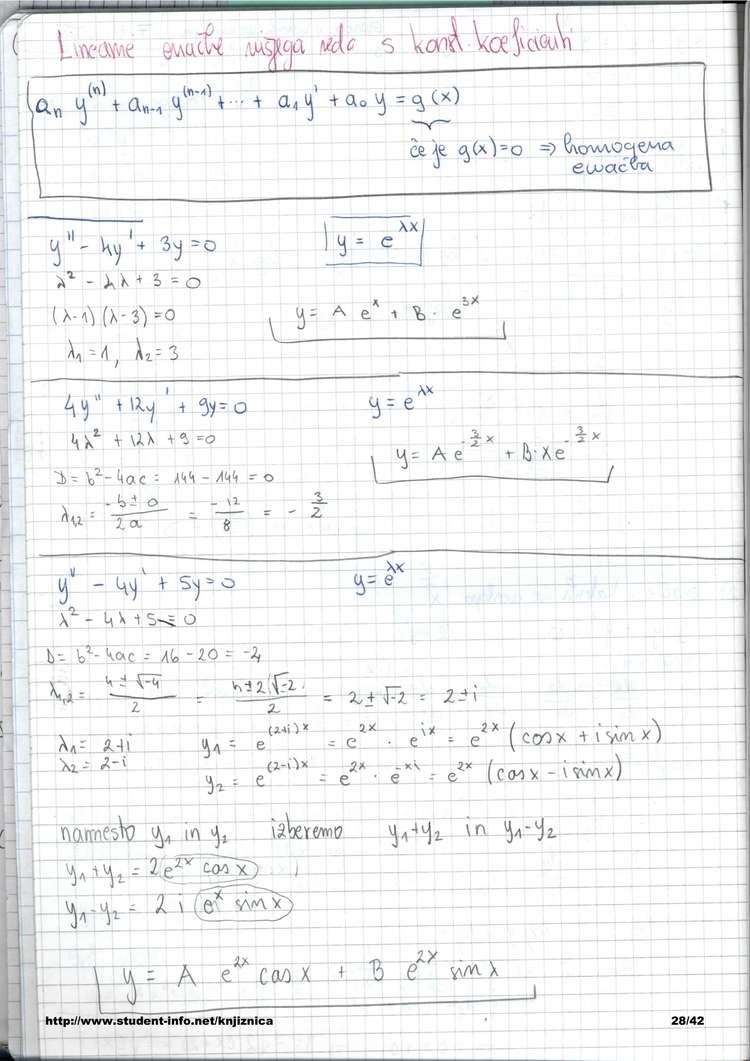 Linearne enačbe višjega reda s konst. koeficienti
aₙ y⁽ⁿ⁾ + aₙ₋₁ y⁽ⁿ⁻¹⁾ + ... + a₁y' + a₀ y = g(x)
če je g(x)=0 ⇒ homogena
enačba
y'' - 4y' + 3y = 0
y = e^{λx}
λ² - 4λ + 3 = 0
(λ-1)(λ-3) = 0
y = A e^{x} + B · e^{3x}
λ₁ = 1, λ₂ = 3
4y'' + 12y' + 9y = 0
y = e^{λx}
4λ² + 12λ + 9 = 0
y = A e^{-3/2 x} + B·x e^{-3/2 x}
D = b² - 4ac = 144 - 144 = 0
λ₁,₂ = (-b ± 0)/(2a) = (-12)/8 = - 3/2
y'' - 4y' + 5y = 0
y = e^{λx}
λ² - 4λ + 5 = 0
D = b² - 4ac = 16 - 20 = -4
λ₁,₂ = (4 ± √-4)/2 = (4 ± 2√-2)/2 = 2 ± √-2 = 2 ± i
λ₁ = 2+i
y₁ = e^{(2+i)x} = e^{2x} · e^{ix} = e^{2x} (cosx + i sinx)
λ₂ = 2-i
y₂ = e^{(2-i)x} = e^{2x} · e^{-xi} = e^{2x} (cosx - i sinx)
namesto y₁ in y₂ izberemo y₁+y₂ in y₁-y₂
y₁+y₂ = 2 e^{2x} cosx
y₁-y₂ = 2 i e^{x} sinx
y = A e^{2x} cosx + B e^{2x} sinx
http://www.student-info.net/knjiznica
28/42